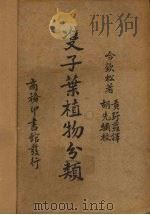 今欽松著
黃野蘿譯
胡先驌校
雙子葉植物分類
商務印書館發行